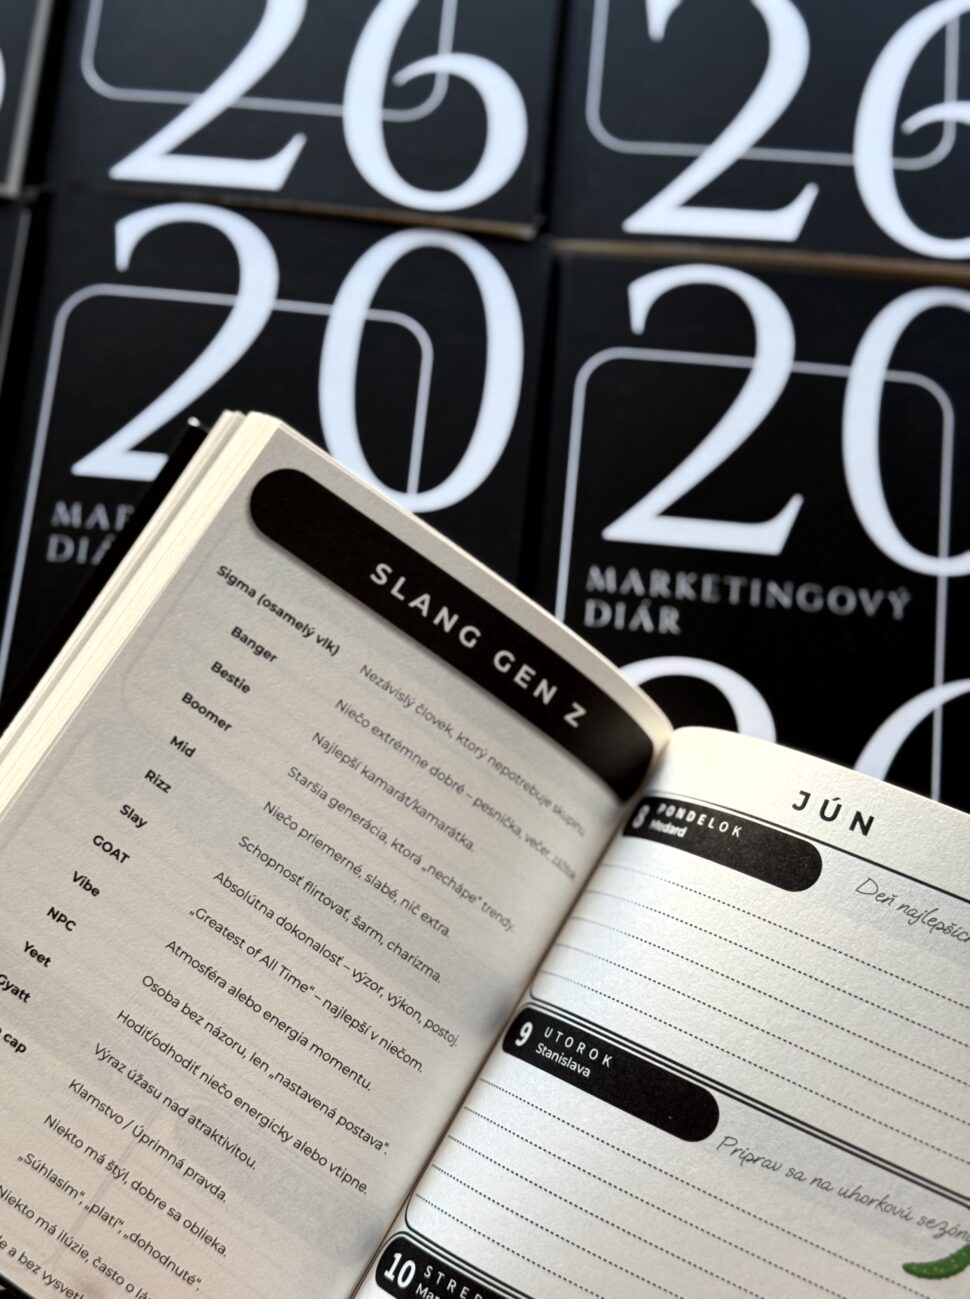 26
26
20
20
MARKETINGOVÝ
DIÁR
SLANG GEN Z
Sigma (osamelý vlk) Nezávislý človek, ktorý nepotrebuje skupinu.
Banger Niečo extrémne dobré – pesnička, večer, zážitok.
Bestie Najlepší kamarát/kamarátka.
Boomer Staršia generácia, ktorá „nechápe“ trendy.
Mid Niečo priemerné, slabé, nič extra.
Rizz Schopnosť flirtovať, šarm, charizma.
Slay Absolútna dokonalosť – výzor, výkon, postoj.
GOAT „Greatest of All Time“ – najlepší v niečom.
Vibe Atmosféra alebo energia momentu.
NPC Osoba bez názoru, len „nastavená postava“.
Yeet Hodiť/odhodiť niečo energicky alebo vtipne.
Gyatt Výraz úžasu nad atraktivitou.
cap Klamstvo / Úprimná pravda.
Niekto má štýl, dobre sa oblieka.
„Súhlasím“, „platí“, „dohodnuté“.
Niekto má ilúzie, často o
a bez
JÚN
8 PONDELOK
Medard
Deň
9 UTOROK
Stanislava
Priprav sa na uhorkovú
10